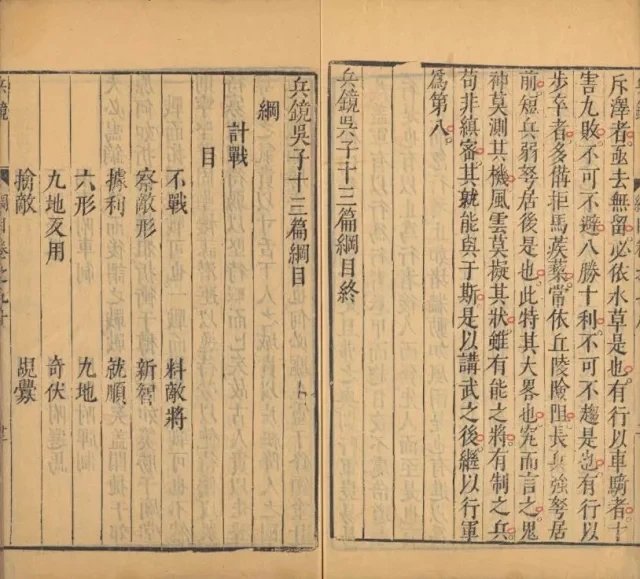 斥澤者亟去無留必依水草是也有行以車騎者十
害九敗不可不避八勝十利不可不趨是也有行以
步卒者多備拒馬蒺藜常依丘陵險阻長兵強弩居
前短兵弱弩居後是也此特其大畧也究而言之鬼
神莫測其機風雲莫擬其狀雖有能之將有制之兵
苟非縝審其就能與于斯是以講武之後繼以行軍
為第八
兵鏡吳子十三篇綱目終
兵鏡吳子十三篇綱目
綱
計戰
目
不戰 料敵將
察敵形 新智
據利 就順
六形 九地
九地交用 奇伏
擒敵 覘釁
兵鏡